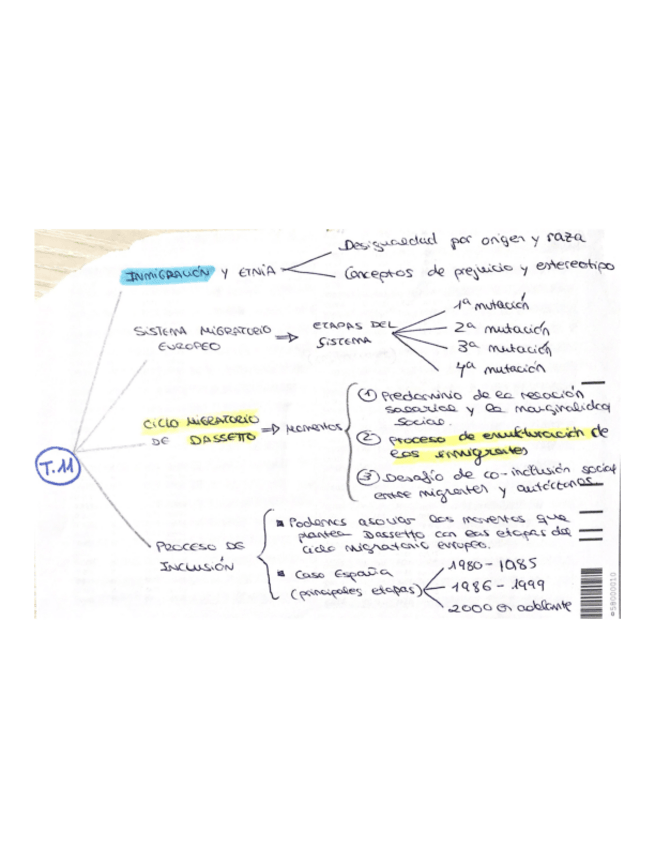 Desigualdad por origen y raza
INMIGRACIÓN Y ETNIA
Conceptos de prejuicio y estereotipo
SISTEMA MIGRATORIO
EUROPEO
⇒ ETAPAS DEL
SISTEMA
1ª mutación
2ª mutación
3ª mutación
4ª mutación
CICLO MIGRATORIO
DE DASSETTO
⇒ MOMENTOS
① Predominio de la relación
salarial y la marginalidad
social.
② proceso de enculturación de
los inmigrantes
③ Desafío de co-inclusión social
entre migrantes y autóctonos
T.11
PROCESO DE
INCLUSIÓN
▪ Podemos asociar los momentos que
plantea Dassetto con las etapas del
ciclo migratorio europeo.
▪ Caso España
(principales etapas)
1980 - 1985
1986 - 1999
2000 en adelante
58000010